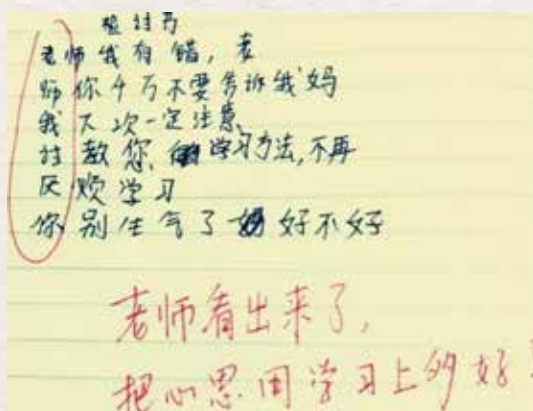 检讨书
老师我有错,老
师你千万不要告诉我妈
我下次一定注意
讨教您学习方法,不再
厌烦学习
你别生气了好不好
老师看出来了,
把心思用学习上多好!